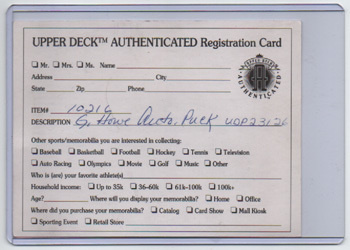 UPPER DECK™ AUTHENTICATED Registration Card
☐ Mr. ☐ Mrs. ☐ Ms. Name
Address City
State Zip Phone
UPPER DECK AUTHENTICATED
ITEM# 10216
DESCRIPTION G. Howe Auto. Puck UDP23126
Other sports/memorabilia you are interested in collecting:
☐ Baseball ☐ Basketball ☐ Football ☐ Hockey ☐ Tennis ☐ Television
☐ Auto Racing ☐ Olympics ☐ Movie ☐ Golf ☐ Music ☐ Other
Who is (are) your favorite athlete(s)
Household income: ☐ Up to 35k ☐ 36-60k ☐ 61k-100k ☐ 100k+
Age? Where will you display your memorabilia? ☐ Home ☐ Office
Where did you purchase your memorabilia? ☐ Catalog ☐ Card Show ☐ Mall Kiosk
☐ Sporting Event ☐ Retail Store